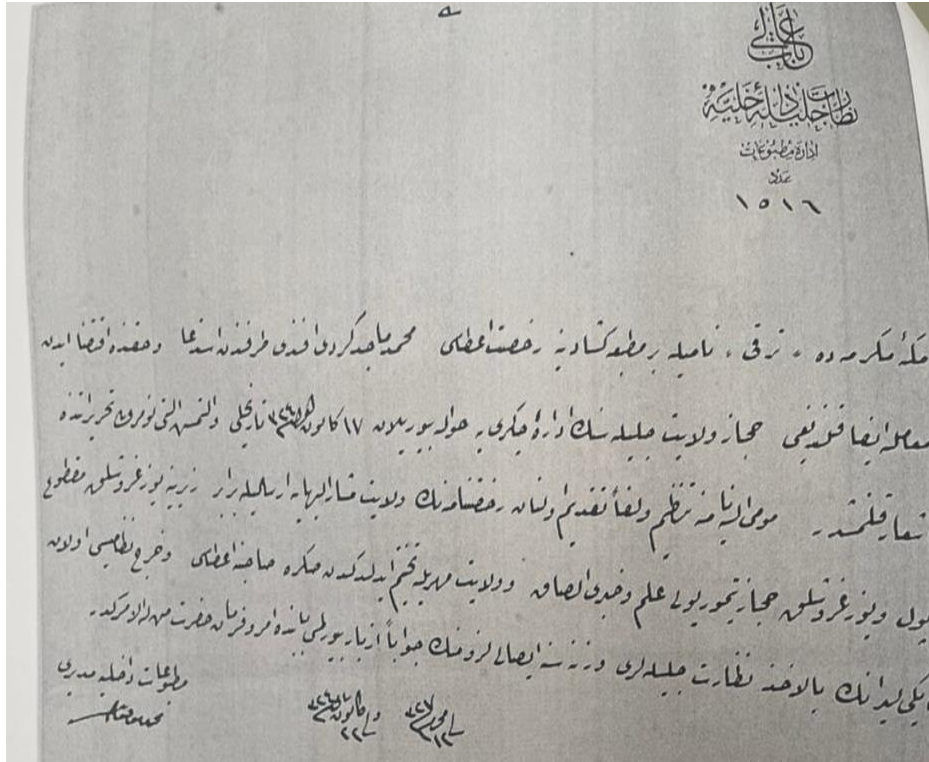 باب عالی
نظارت جلیلهٔ داخلیه
ادارهٔ مطبوعات
عدد
١٥١٦
مكهٔ مكرمه ده ، ترقی ، نامیله بر مطبعه كشادینه رخصت اعطاسی محمد ماجد كردی افندی طرفندن استدعا و حقنده اقتضا ایدن
معامله ایفا قلندیغی حجاز ولایت جلیله سنك ادارهٔ چاكری یه حواله بیوریلان ١٧ كانون تاریخلی والتمش التی نومرولی تحریراتنده
اشعار قلنمشدر مومی الیه نامنه تنظیم ولفاً تقدیم اولنان رخصتنامه نك ولایت مشار الیهایه ارسالیله برابر زیرینه یوز غروشلق مقطوع
پول ویوز غروشلق حجاز تیمور یولی علم وخبری الصاق وولایت مهریله تختیم ایدلدكدن صكره صاحبنه اعطاسی وخرج نظامیسی اولان
لیرانك بالاخذ نظارت جلیله لری وزنه سنه ایصالی لزومنك جواباً ازبار بیورلمسی بابنده امر وفرمان حضرت من له الامركدر
مطبوعات داخلیه مدیری
فی ١٢ محرم ٣٢٧ وفی ٢٢ كانون